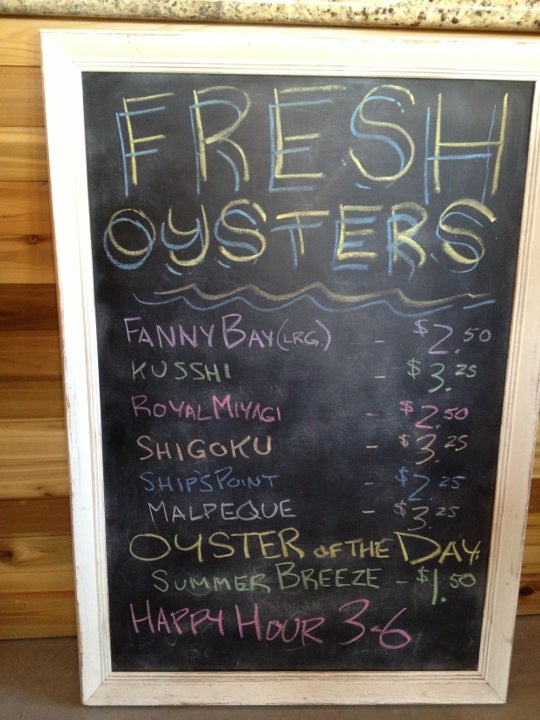 FRESH
OYSTERS
FANNY BAY (LRG.) - $2.50
KUSSHI - $3.25
ROYAL MIYAGI - $2.50
SHIGOKU - $3.25
SHIP'S POINT - $2.25
MALPEQUE - $3.25
OYSTER OF THE DAY:
SUMMER BREEZE - $1.50
HAPPY HOUR 3-6